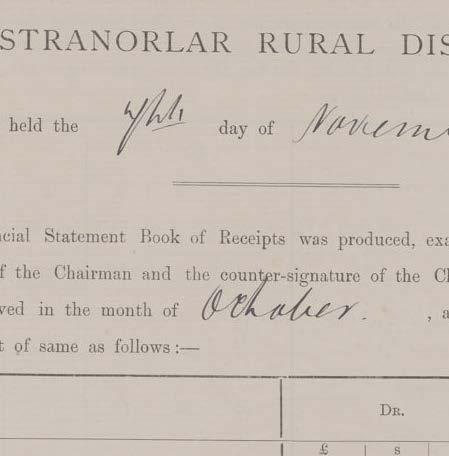 STRANORLAR RURAL DIS
held the 7th day of Novem
ncial Statement Book of Receipts was produced, exa
f the Chairman and the counter-signature of the Cl
ved in the month of October. , a
t of same as follows :—
DR.
£ s